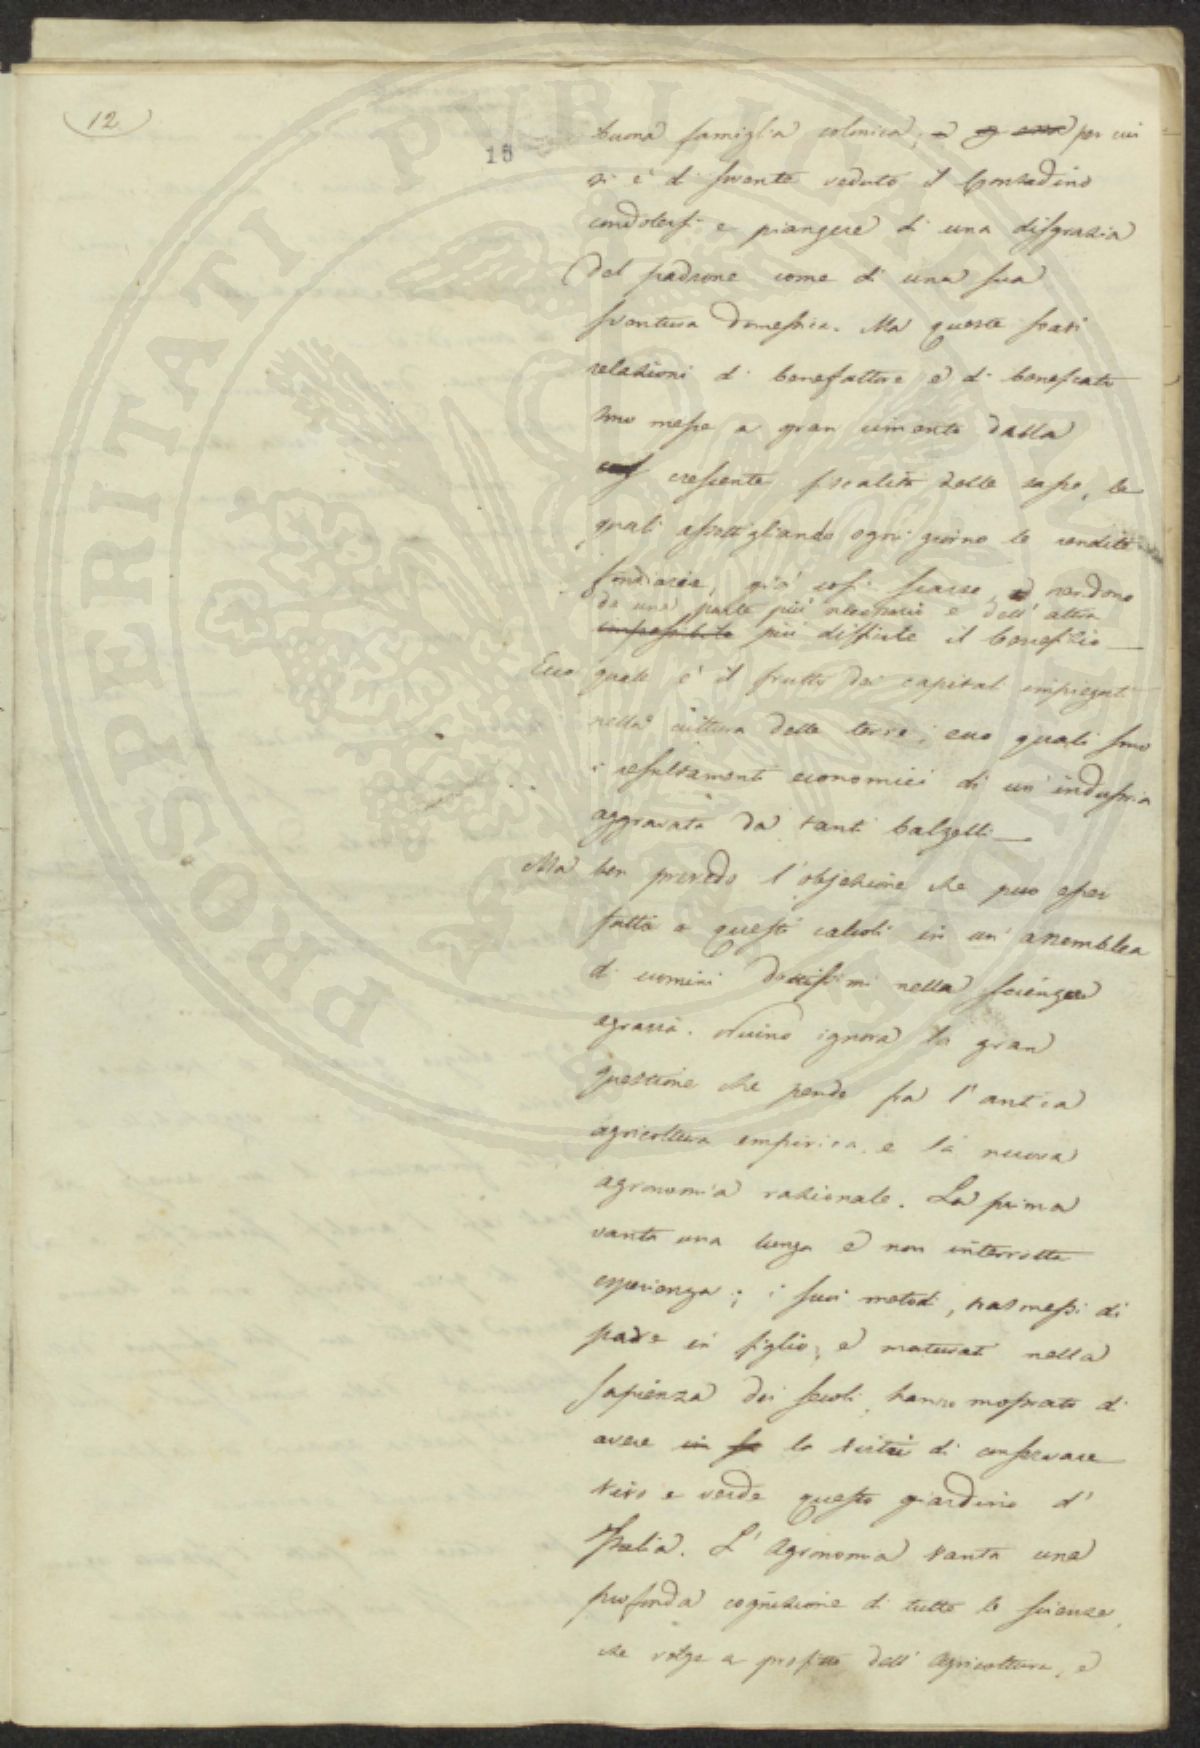 12
18
buona famiglia colonica; per cui
si è di sovente veduto il Contadino
condolersi e piangere di una disgrazia
del padrone come di una sua
sventura domestica. Ma queste
relazioni di benefattore e di beneficato
sono messe a gran cimento dalla
crescente fiscalità delle tasse, le
quali assottigliando ogni giorno le rendite
fondiarie, già così scarse, rendono
da una parte più necessario e dell'altra
impossibile più difficile il beneficio —
Ecco quale è il frutto dei capitali impiegati
nella cultura delle terre; ecco quali sono
i resultamenti economici di un'industria
aggravata da tanti balzelli —
Ma ben prevedo l'objezione che può esser
fatta a questi calcoli in un'assemblea
di uomini dottissimi nella scienza
agraria. Niuno ignora la gran
questione che pende fra l'antica
agricoltura empirica, e la nuova
agronomia razionale. La prima
vanta una lunga e non interrotta
esperienza; i suoi metodi, trasmessi di
padre in figlio, e maturati nella
sapienza dei secoli, hanno mostrato di
avere in se la virtù di conservare
vivo e verde questo giardino d'
Italia. L'Agronomia vanta una
profonda cognizione di tutte le scienze,
che volge a profitto dell'Agricoltura, e
PROSPERITATI PUBLICAE